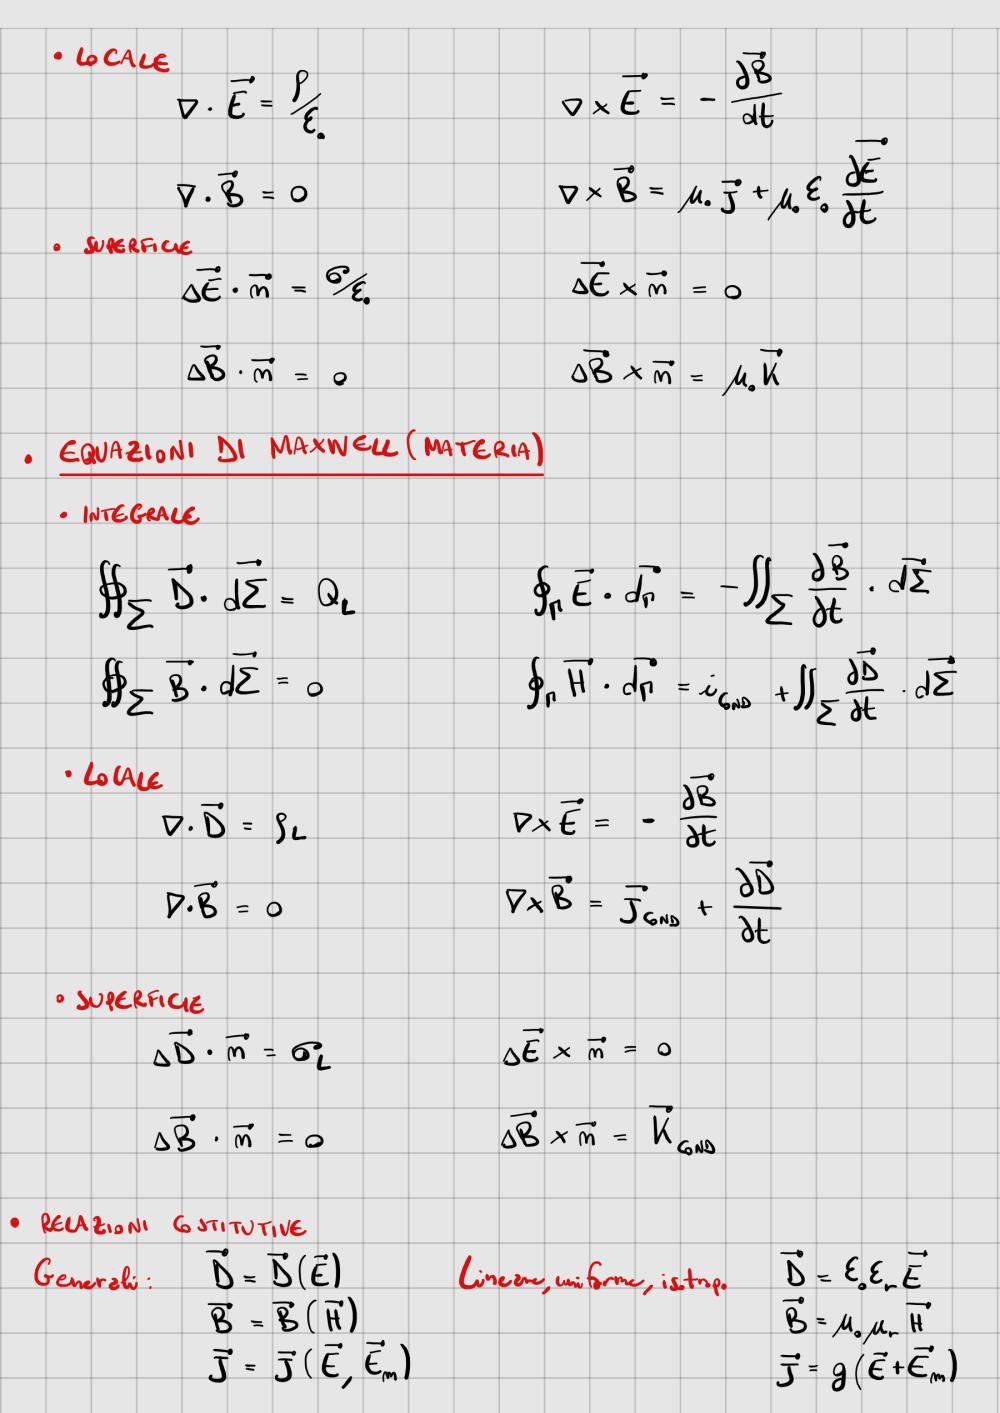 • LOCALE
∇ · E⃗ = ρ/ε₀    ∇ × E⃗ = - ∂B⃗/dt
∇ · B⃗ = 0    ∇ × B⃗ = μ₀ J⃗ + μ₀ ε₀ ∂E⃗/∂t
• SUPERFICIE
ΔE⃗ · n⃗ = σ/ε₀    ΔE⃗ × n⃗ = 0
ΔB⃗ · n⃗ = 0    ΔB⃗ × n⃗ = μ₀ K⃗
• EQUAZIONI DI MAXWELL (MATERIA)
• INTEGRALE
∯_Σ D⃗ · dΣ⃗ = Q_L    ∮_Γ E⃗ · dΓ⃗ = -∬_Σ ∂B⃗/∂t · dΣ⃗
∯_Σ B⃗ · dΣ⃗ = 0    ∮_Γ H⃗ · dΓ⃗ = i_COND + ∬_Σ ∂D⃗/∂t · dΣ⃗
• LOCALE
∇ · D⃗ = ρ_L    ∇ × E⃗ = - ∂B⃗/∂t
∇ · B⃗ = 0    ∇ × B⃗ = J⃗_COND + ∂D⃗/∂t
• SUPERFICIE
ΔD⃗ · n⃗ = σ_L    ΔE⃗ × n⃗ = 0
ΔB⃗ · n⃗ = 0    ΔB⃗ × n⃗ = K⃗_COND
• RELAZIONI COSTITUTIVE
Generali: D⃗ = D⃗(E⃗)    Lineare, uniforme, isotrop. D⃗ = ε₀ε_r E⃗
B⃗ = B⃗(H⃗)    B⃗ = μ₀μ_r H⃗
J⃗ = J⃗(E⃗, E⃗_m)    J⃗ = g(E⃗ + E⃗_m)